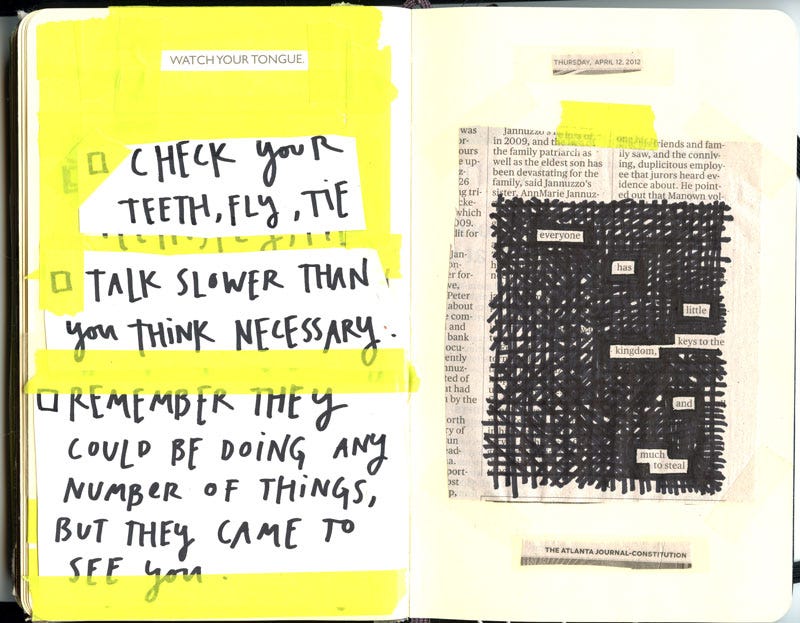 WATCH YOUR TONGUE.
CHECK YOUR
TEETH, FLY, TIE
TALK SLOWER THAN
YOU THINK NECESSARY.
REMEMBER THEY
COULD BE DOING ANY
NUMBER OF THINGS,
BUT THEY CAME TO
SEE YOU.
THURSDAY, APRIL 12, 2012
was
ours
26
which
009.
Jan-
Peter
about
and
bank
ently
ted of
had
by the
in 2009, and the
the family patriarch as
well as the eldest son has
been devastating for the
family, said Jannuzzo's
sister, AnnMarie Jannuz-
friends and fam-
ily saw, and the conniv-
ing, duplicitous employ-
ee that jurors heard ev-
idence about. He point-
ed out that Manown vol-
everyone
has
little
keys to the
kingdom,
and
much
to steal
THE ATLANTA JOURNAL-CONSTITUTION